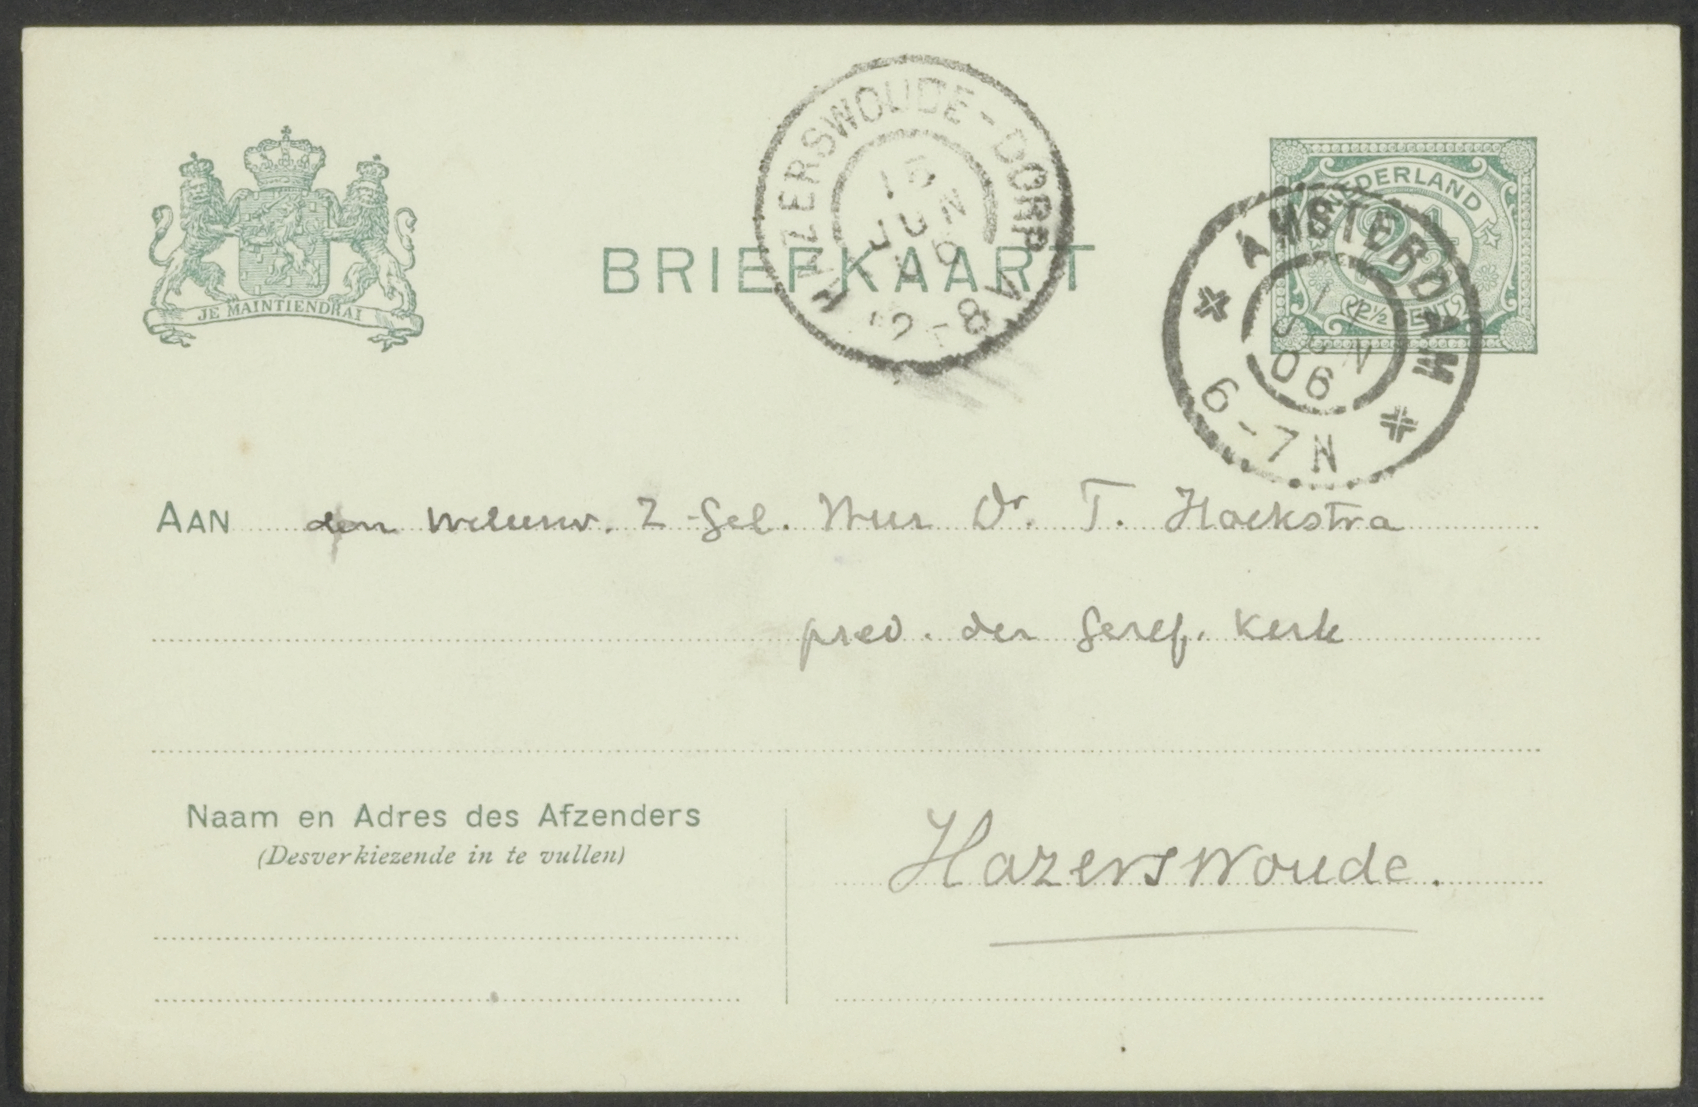 JE MAINTIENDRAI
BRIEFKAART
HAZERSWOUDE-DORP
JUN
NEDERLAND
2½
AMSTERDAM
JUN
06
6-7N
AAN den Weleerw. Z-Gel. Heer Dr. T. Hoekstra
pred. der Geref. Kerk
Naam en Adres des Afzenders
(Desverkiezende in te vullen)
Hazerswoude.